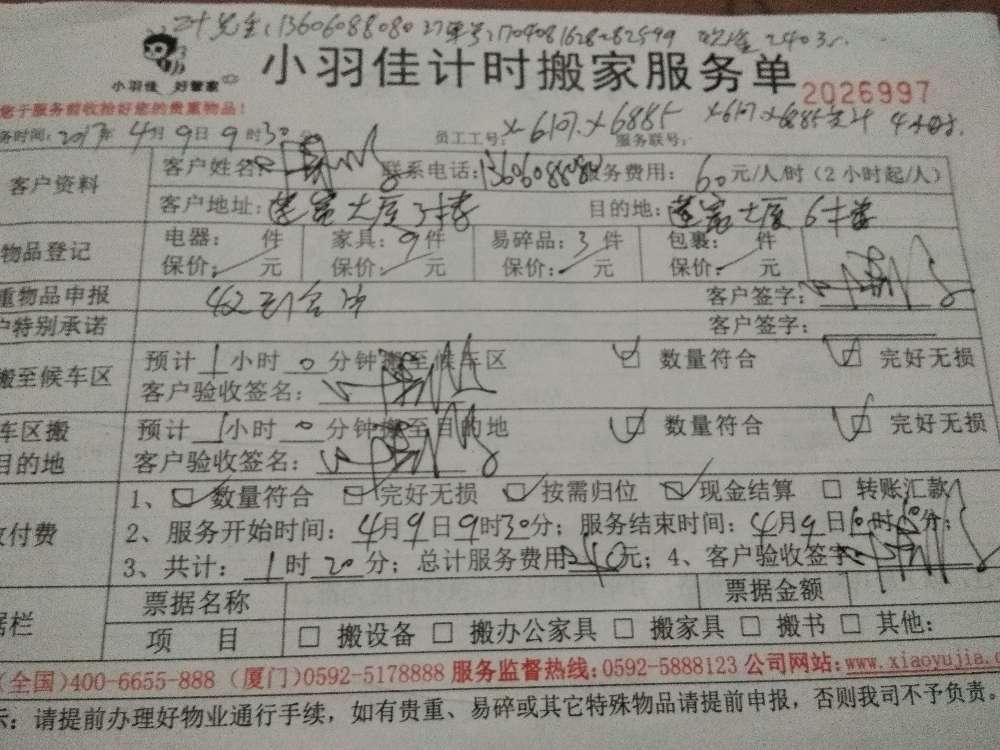 叶先生:13606088080 订单号:1704081628282599 2403
小羽佳 好管家
小羽佳计时搬家服务单 2026997
您于服务前收拾好您的贵重物品!
务时间:2017年4月9日9时30分 员工工号:x-6107.x6885 服务联号: x-6107.x6885 4小时
客户资料 客户姓名: 联系电话:13606088080 服务费用:60元/人/时(2小时起/人)
客户地址:莲富大厦3楼 目的地:莲富大厦6楼
物品登记 电器: 件 家具:9件 易碎品:3件 包裹: 件
保价: 元 保价: 元 保价: 元 保价: 元
重物品申报 客户签字:
户特别承诺 客户签字:
搬至候车区 预计1小时0分钟搬至候车区 数量符合 完好无损
客户验收签名:
车区搬 预计1小时0分钟搬至目的地 数量符合 完好无损
目的地 客户验收签名:
付费 1、数量符合 完好无损 按需归位 现金结算 转账汇款
2、服务开始时间:4月9日9时30分;服务结束时间:4月9日10时50分;
3、共计:1时20分;总计服务费用240元;4、客户验收签字
票据名称 票据金额
据栏 项 目 搬设备 搬办公家具 搬家具 搬书 其他:
(全国)400-6655-888 (厦门)0592-5178888 服务监督热线:0592-5888123 公司网站:www.xiaoyujia.c
示:请提前办理好物业通行手续,如有贵重、易碎或其它特殊物品请提前申报,否则我司不予负责。